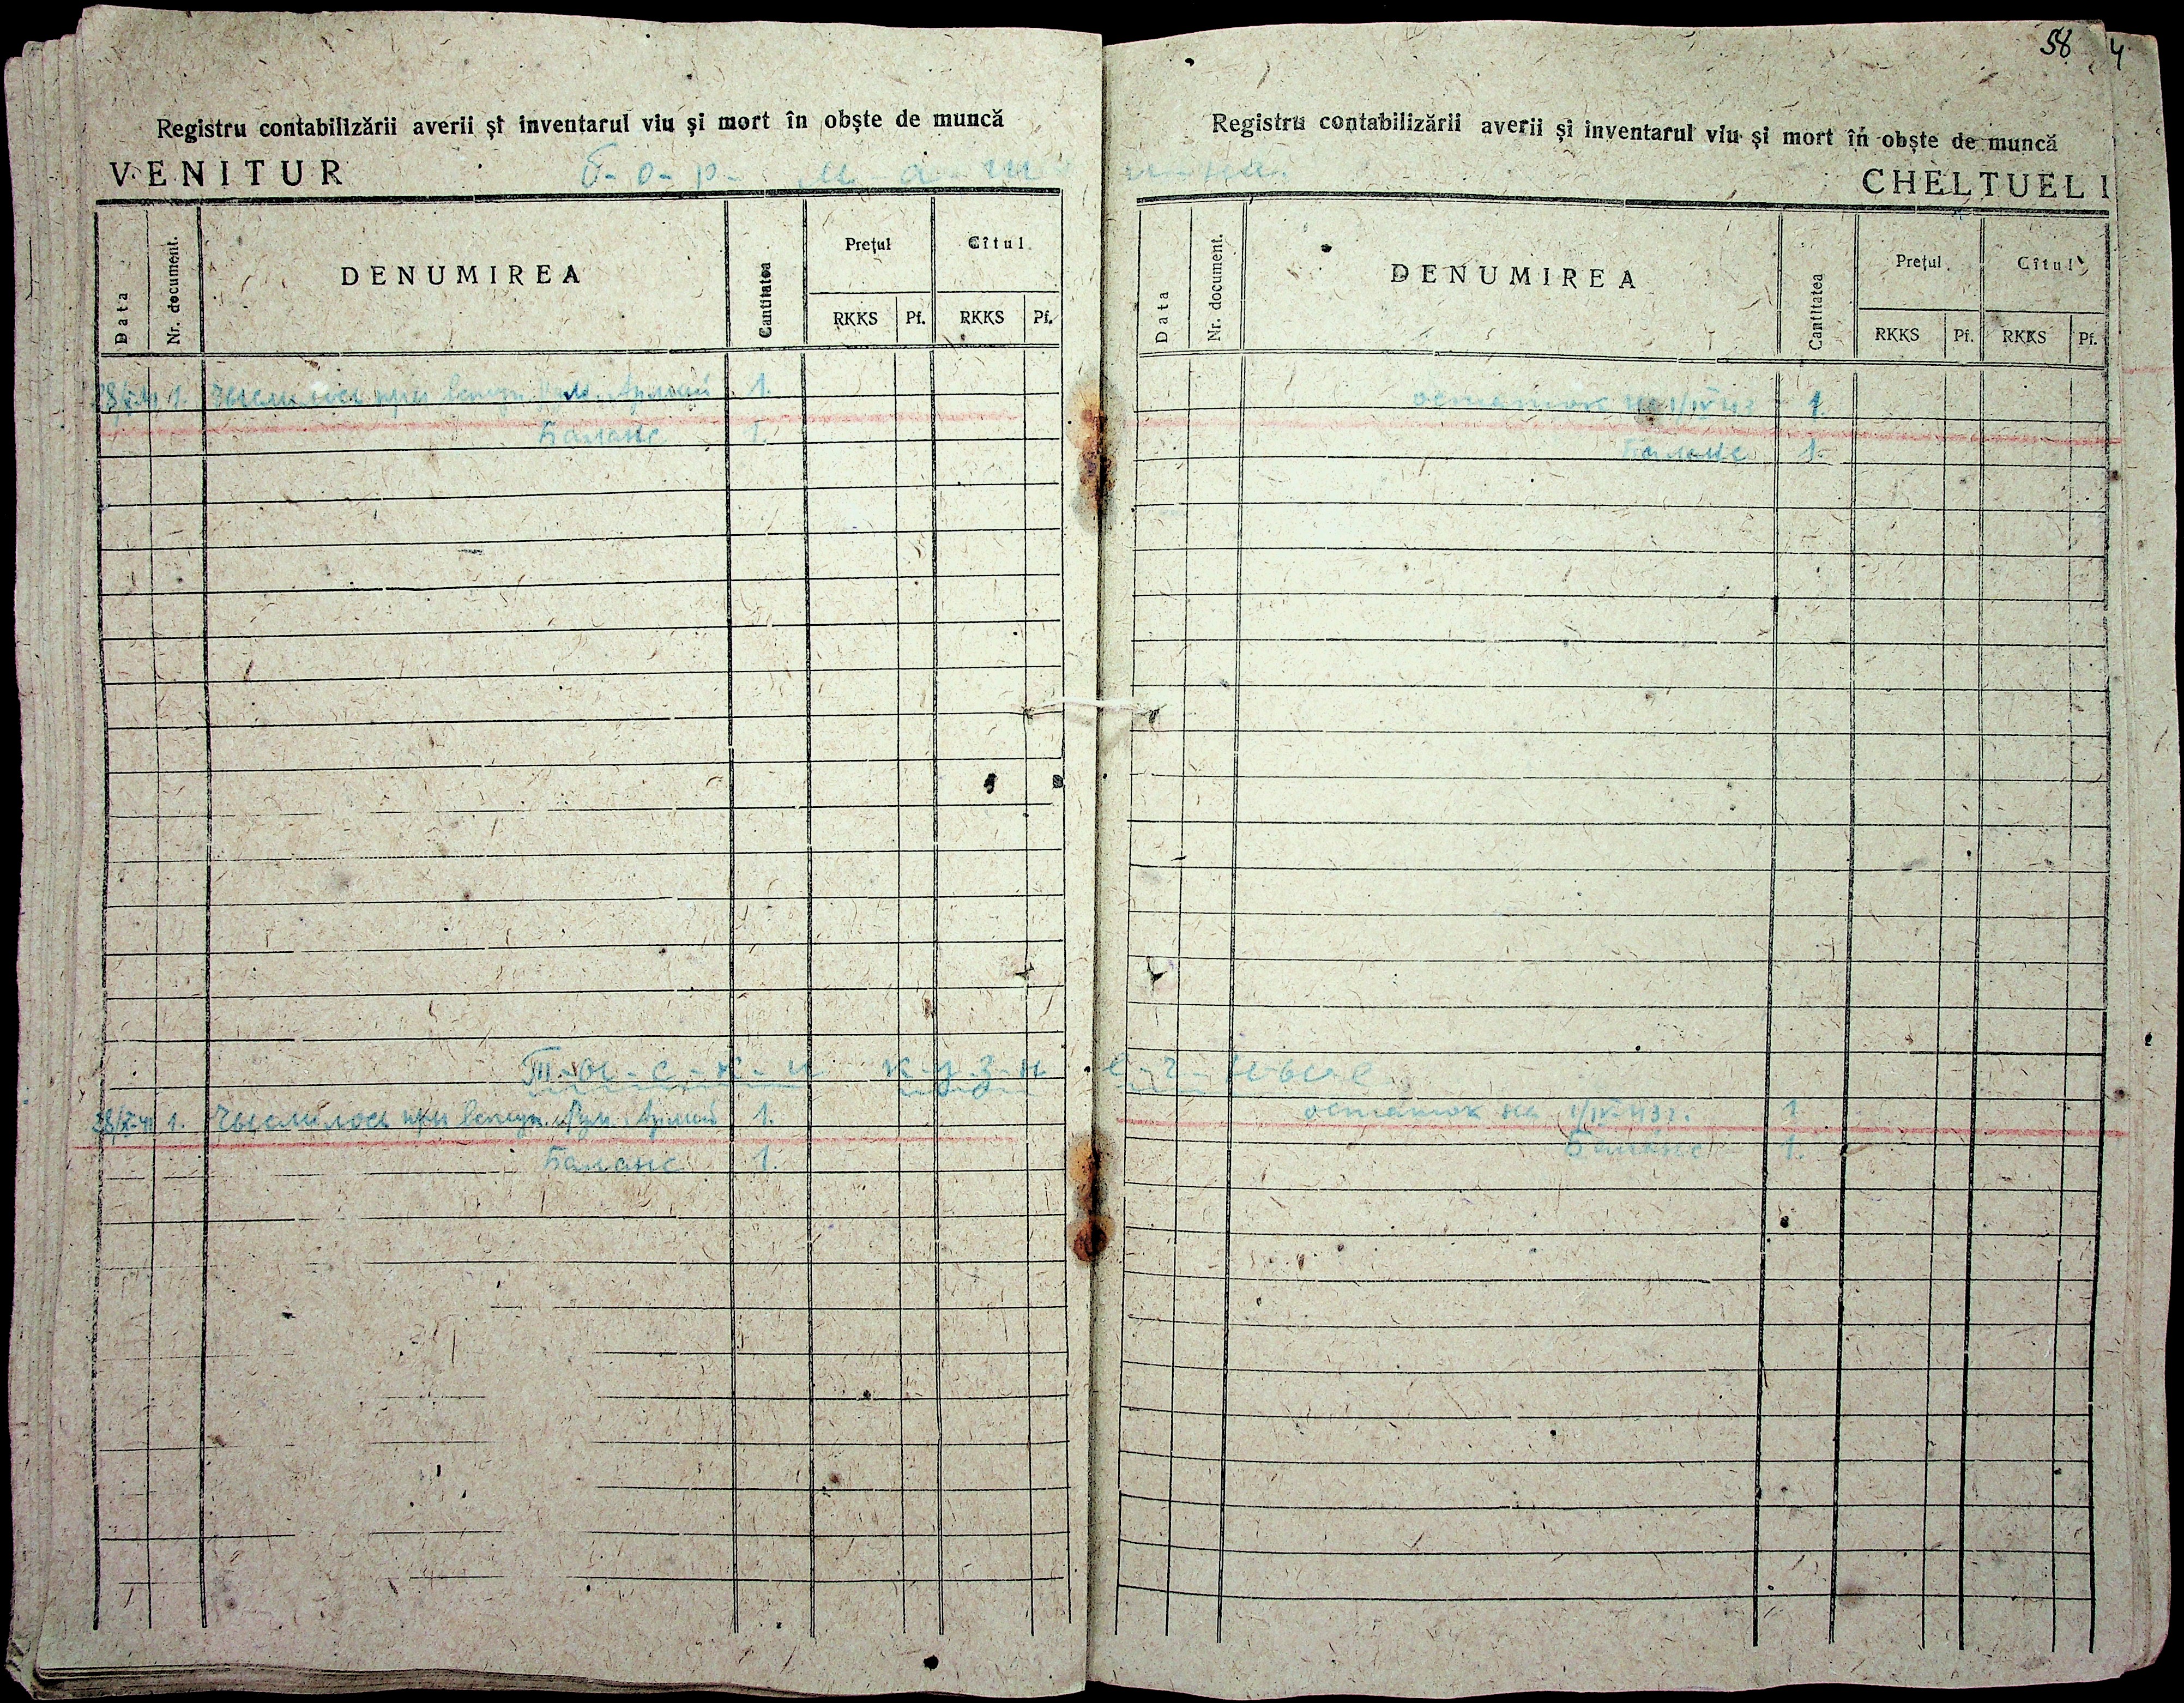 58 4
Registru contabilizării averii şi inventarul viu şi mort în obşte de muncă
VENITUR
Б-о-р- м-а-ш-
Data Nr. document. DENUMIREA Cantitatea Preţul Cîtul
RKKS Pf. RKKS Pf.
28/X-41 1. Числилось при вступ. Рум. Армии 1.
Баланс 1.
Т-и-с-к-и к-у-з-н
28/X-41 1. Числилось при вступ. Рум. Армии 1.
Баланс 1.
Registru contabilizării averii şi inventarul viu şi mort în obşte de muncă
и-на
CHELTUELI
Data Nr. document. DENUMIREA Cantitatea Preţul Cîtul
RKKS Pf. RKKS Pf.
остаток на 1/IV 43 1.
Баланс 1.
е-ч-ные
остаток на 1/IV-43г. 1
Баланс 1.